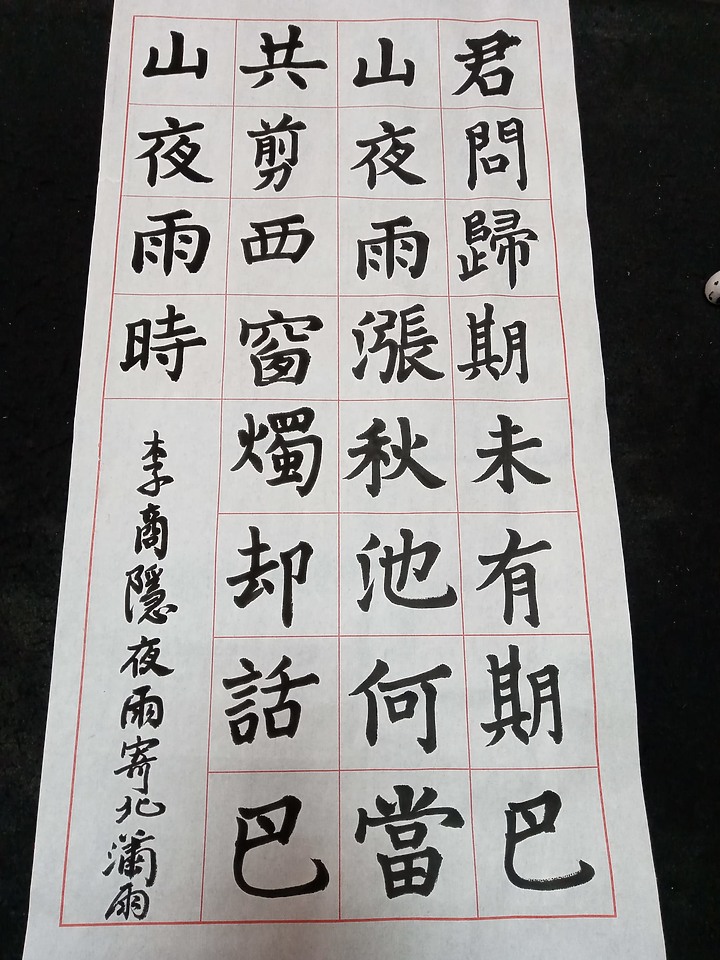 君問歸期未有期巴
山夜雨漲秋池何當
共剪西窗燭却話巴
山夜雨時
李商隱夜雨寄北瀟雨